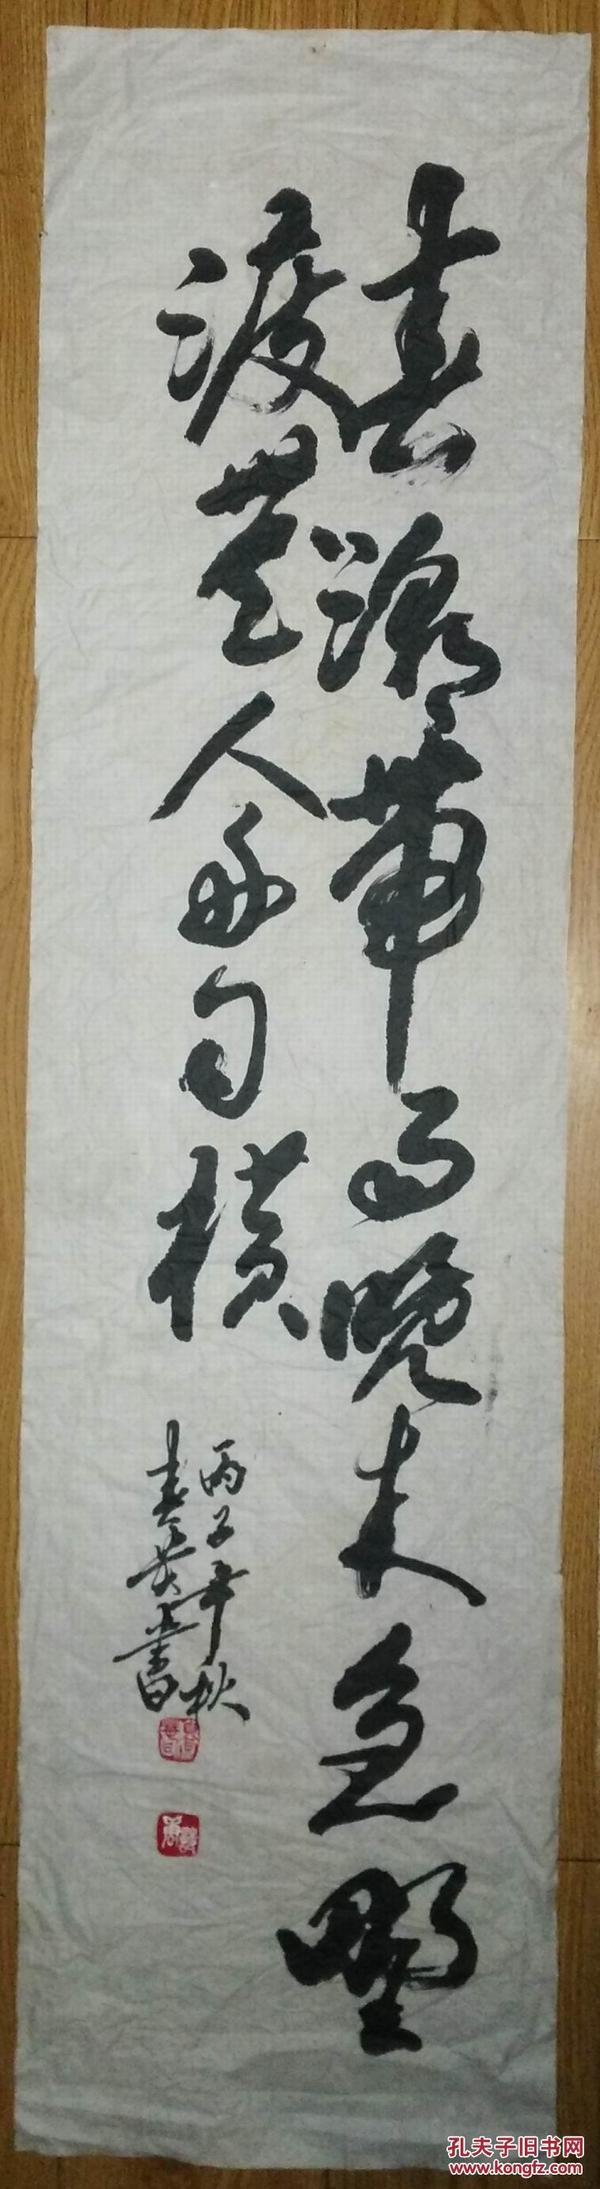 春潮带雨晚来急野
渡无人舟自横
丙子年秋
春英书
孔夫子旧书网
www.kongfz.com